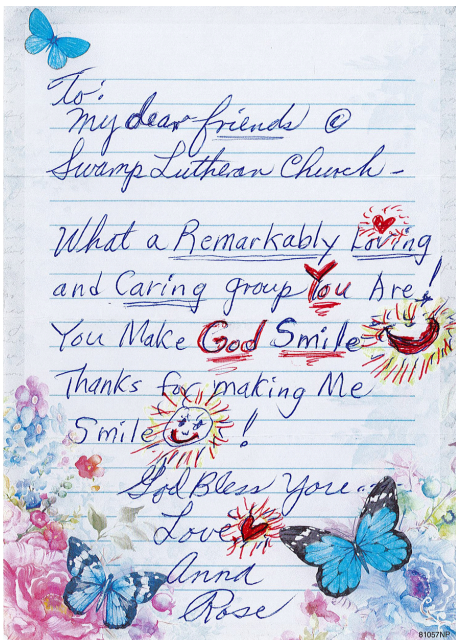 To:
My dear friends @
Swamp Lutheran Church -
What a Remarkably Loving
and Caring group You Are!
You Make God Smile
Thanks for making Me
Smile !
God Bless You...
Love
Anna
Rose
81057NP